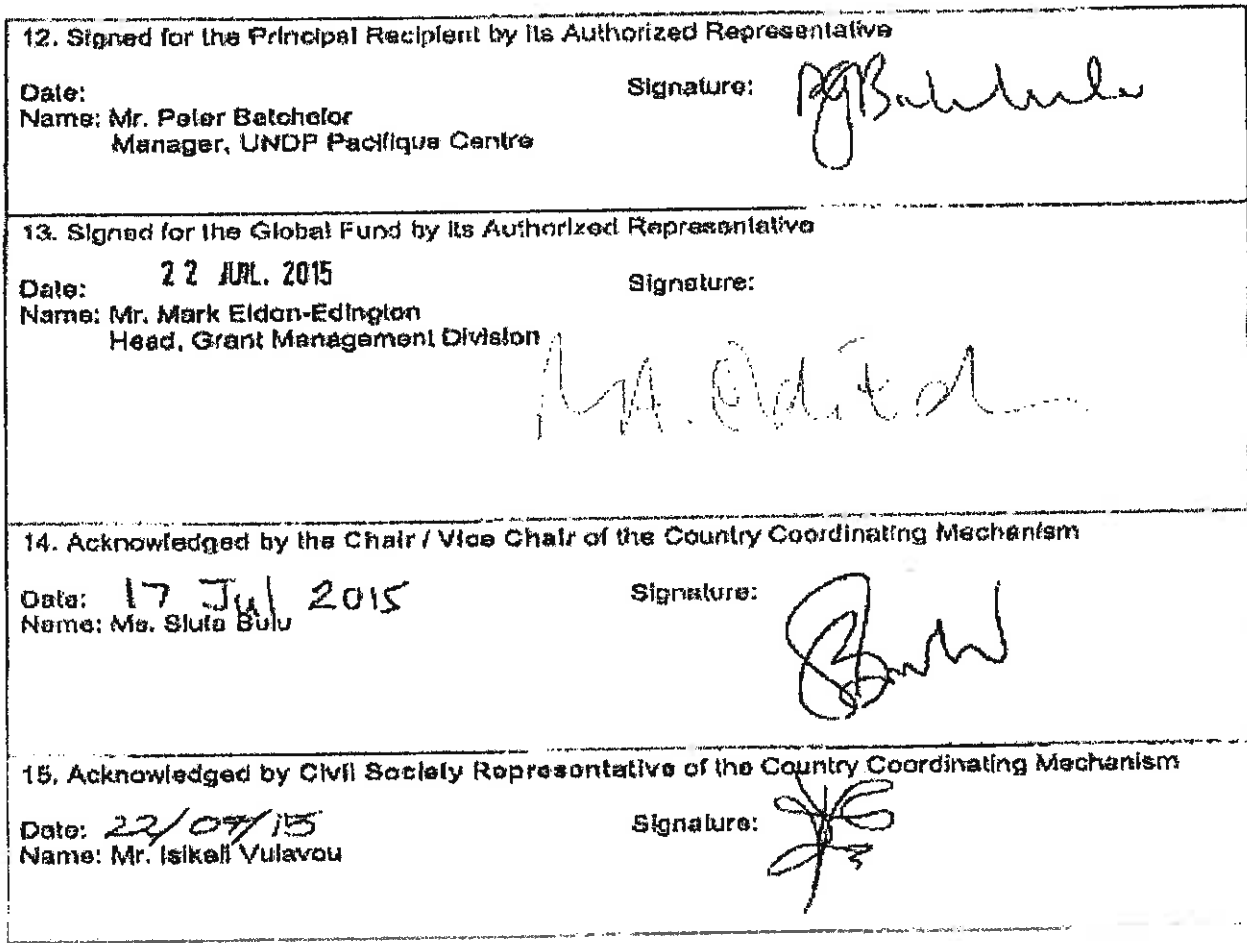 12. Signed for the Principal Recipient by its Authorized Representative
Date:
Signature:
Name: Mr. Peter Batchelor
Manager, UNDP Pacifique Centre
13. Signed for the Global Fund by its Authorized Representative
Date: 22 JUIL. 2015
Signature:
Name: Mr. Mark Eldon-Edington
Head, Grant Management Division
14. Acknowledged by the Chair / Vice Chair of the Country Coordinating Mechanism
Date: 17 Jul 2015
Signature:
Name: Ms. Siula Bulu
15. Acknowledged by Civil Society Representative of the Country Coordinating Mechanism
Date: 22/07/15
Signature:
Name: Mr. Isikeli Vulavou